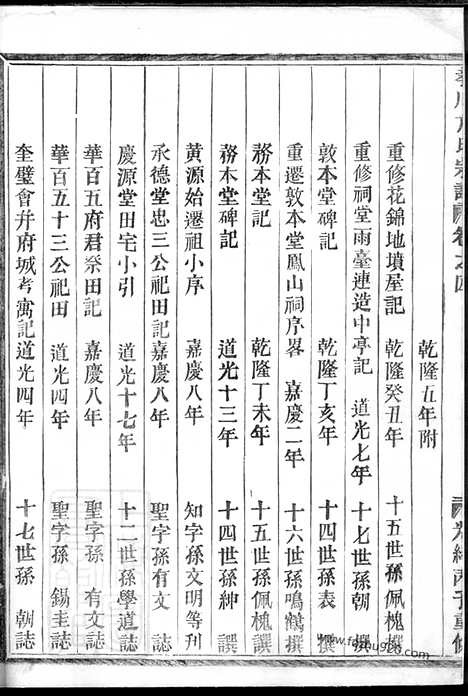 乾隆五年附
重修花錦地墳屋記 乾隆癸丑年 十五世孫佩槐撰
重修祠堂兩臺連造中亭記 道光七年 十七世孫朝撰
敦本堂碑記 乾隆丁亥年 十四世孫表撰
重遷敦本堂鳳山祠序畧 嘉慶二年 十六世孫鳴鶴撰
務本堂記 乾隆丁未年 十五世孫佩槐譔
務木堂碑記 道光十三年 十四世孫紳譔
黃源始遷祖小序 嘉慶八年 知字孫文明等刋
承德堂忠三公祀田記 嘉慶八年 聖字孫有文誌
慶源堂田宅小引 道光十七年 十二世孫學道誌
華百五府君祭田記 嘉慶八年 聖字孫有文誌
華百五十三公祀田 道光四年 聖字孫錫圭誌
奎璧會并府城考寓記 道光四年 十七世孫朝誌